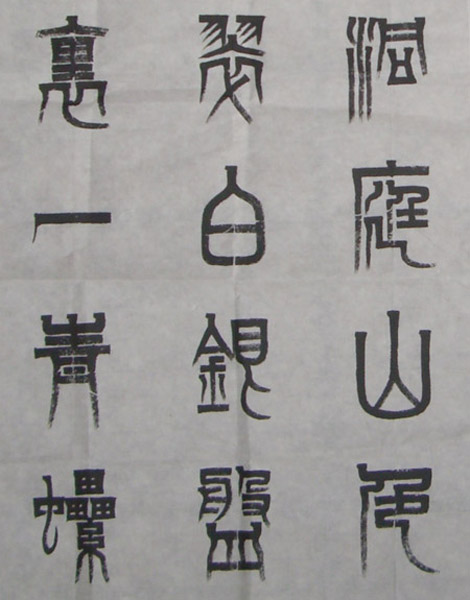 洞庭山色
翠白銀盤
裏一青螺